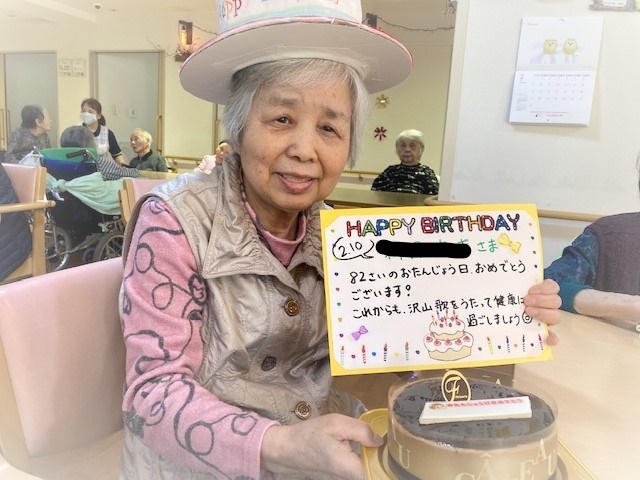 HAPPY BIRTHDAY
2.10
さま
82さいのおたんじょう日、おめでとう
ございます!
これからも、沢山歌をうたって健康に
過ごしましょう